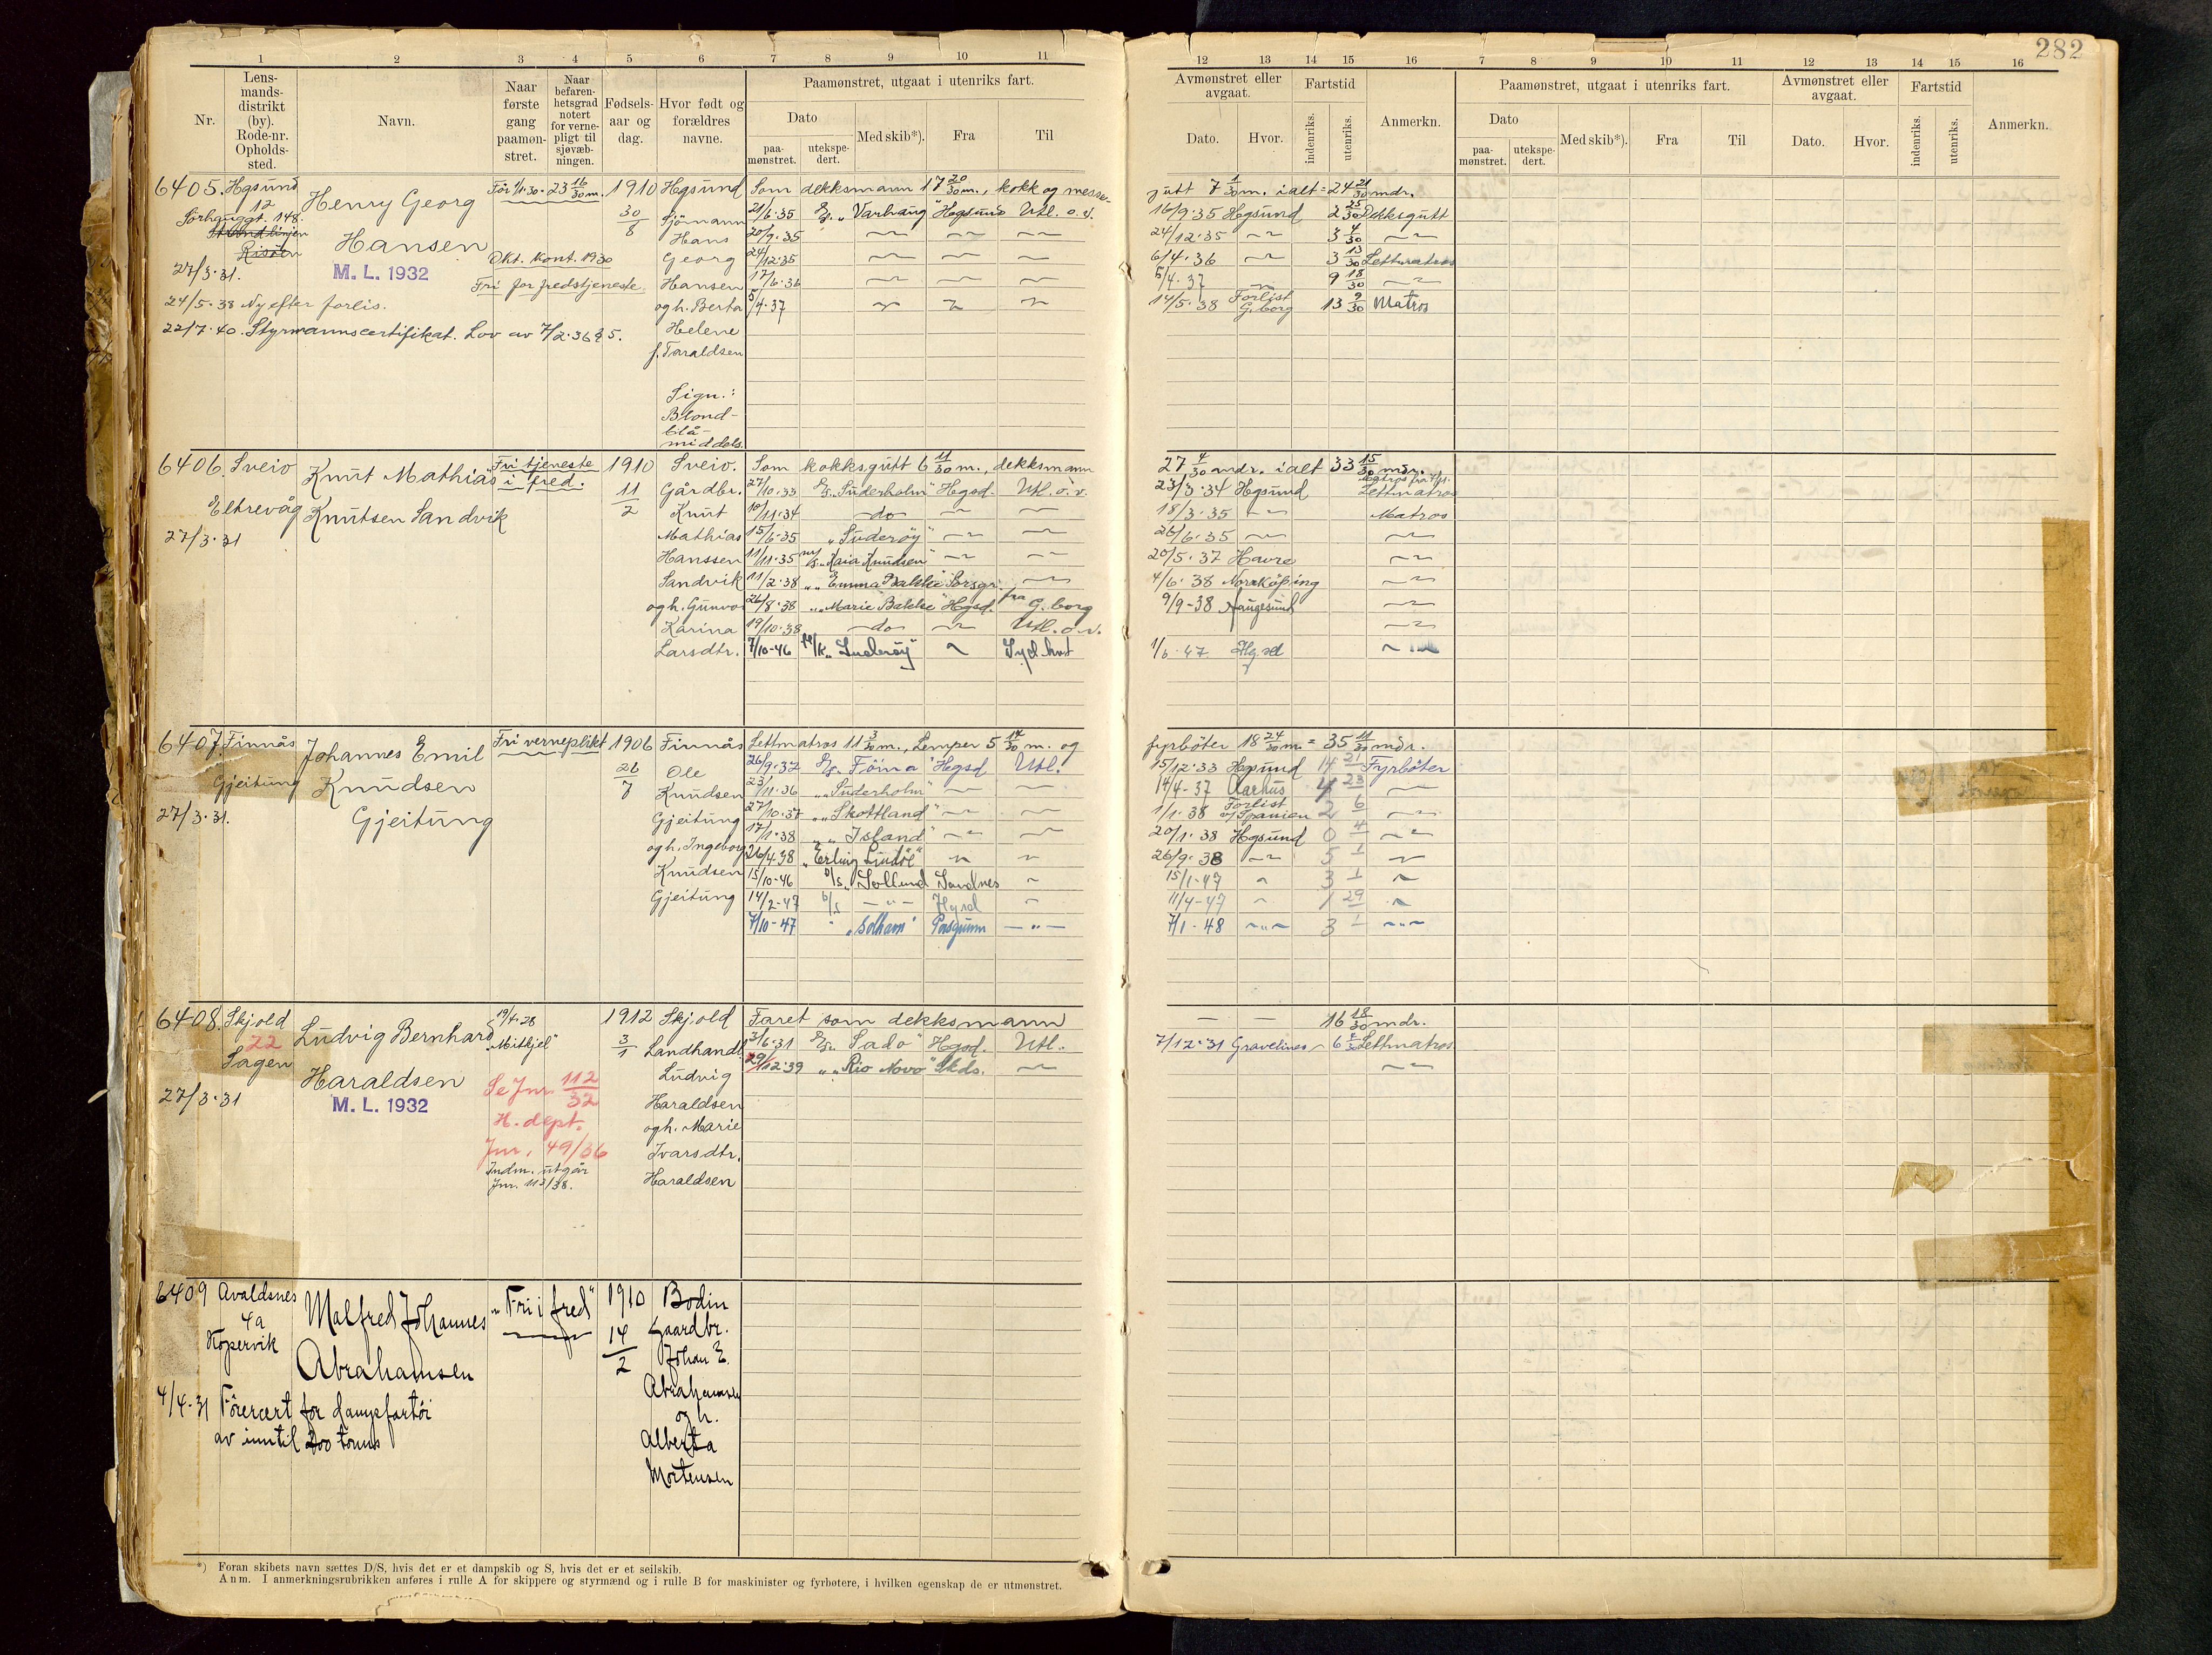 282
1 2 3 4 5 6 7 8 9 10 11
Nr.
Lens-
mands-
distrikt
(by).
Rode-nr.
Opholds-
sted.
Navn.
Naar
første
gang
paamøn-
stret.
Naar
befaren-
hetsgrad
notert
for verne-
pligt til
sjøvæb-
ningen.
Fødsels-
aar og
dag.
Hvor født og
forældres
navne.
Paamønstret, utgaat i utenriks fart.
Dato
paa-
mønstret.
utekspe-
dert.
Med skib*).
Fra
Til
12 13 14 15 16 7 8 9 10 11 12 13 14 15 16
Avmønstret eller
avgaat.
Dato. Hvor.
Fartstid
indenriks. utenriks.
Anmerkn.
Paamønstret, utgaat i utenriks fart.
Dato
paa-
mønstret.
utekspe-
dert.
Med skib*).
Fra
Til
Avmønstret eller
avgaat.
Dato. Hvor.
Fartstid
indenriks. utenriks.
Anmerkn.
6405. Hgsund
12
Sørhauggt. 148.
Strandlinjen
Risøen
27/3.31.
Henry Georg
Hansen
M. L. 1932
Før 1/1.30. 23 16/30 m.
Okt. kont. 1930
Fri for fredstjeneste
24/5.38 Ny efter forlis.
22/7.40. Styrmannscertifikat. Lov av 7/2.36 § 5.
1910
30/8
Hgsund
Sjömann
Hans
Georg
Hansen
og h. Berta
Helene
f. Taraldsen
Sign.:
Blond-
blå-
middels.
Som dekksmann 17 20/30 m., kokk og messe-
gutt 7 1/30 m. ialt = 24 21/30 mdr.
21/6.35 "Varhaug" Hegsund Utl. o. v. 16/9.35 Hegsund 2 25/30 Dekksgutt
20/9.35 24/12.35 3 4/30
24/12.35 6/4.36 3 13/30 Lettmatros
17/6.36 5/4.37 9 18/30
5/4.37 14/5.38 Forlist G.borg 13 9/30 Matros
6406. Sveio
Eltrevåg
27/3.31
Knut Mathias
Knutsen Sandvik
Fri tjeneste
i fred.
1910
11/2
Sveio.
Gårdbr.
Knut
Mathias
Hanssen
Sandvik
og h. Gunvor
Karina
Larsdtr.
Som kokksgutt 6 11/30 m., dekksmann
27 4/30 mdr. ialt 33 15/30 mdr.
27/10.33 "Suderholm" Hegsd. Utl. o. v. 23/3.34 Hgsund Lettmatros
10/11.34 do 18/3.35 Matros
15/6.35 "Suderøy" 26/6.35
11/11.35 "Kaia Knudsen" 20/5.37 Havre
11/2.38 "Emma Bakke" Porsgr. 4/6.38 Norrköping
26/8.38 "Marie Bakke" Hgsd. fra G.borg 9/9-38 Haugesund
19/10.38 do Utl. o. v.
7/10-46 "Suderøy" Syd. havt 1/6-47 Hgsd
6407. Finnås
Gjeitung
27/3.31.
Johannes Emil
Knudsen
Gjeitung
Fri verneplikt
1906
26/7
Finnås
Ole
Knudsen
Gjeitung
og h. Ingeborg
Knudsen
Gjeitung
Lettmatros 11 3/30 m., Lemper 5 14/30 m. og
fyrböter 18 24/30 m. = 35 11/30 mdr.
26/9.32 "Föina" Hgsd Utl. 15/12.33 Hgsund 14 21 Fyrböter
23/11.36 "Suderholm" 14/4-37 Aarhus 4 23
27/10.37 "Skottland" 1/1.38 Forlist v/Spanien 2 6
17/1.38 "Island" 20/1.38 Hgsund 0 4
26/4.38 "Erling Lindöe" 26/9.38 5 1
15/10-46 Sollund Sandnes 15/1-47 3 1
14/2-47 Hgsd 11/4-47 1 29
7/10-47 "Solhavn" Porsgrunn 7/1-48 3 1
6408. Skjold
22
Sagen
27/3.31
Ludvig Bernhard
Haraldsen
M. L. 1932
19/4.28
"Mitkjel"
Se Jnr. 112/32
H. dept.
Jnr. 49/36
Indm. utgår
Jnr. 113/38.
1912
3/1
Skjold
Landhandl.
Ludvig
Haraldsen
og h. Marie
Ivarsdtr.
Haraldsen
Faret som dekksmann 16 18/30 mdr.
3/6.31 "Sado" Hgsd. Utl. 7/12.31 Gravelines 6 Lettmatros
29/12.39 "Rio Novo" Skds.
6409 Avaldsnes
4a
Kopervik
4/4-31
Malfred Johannes
Abrahamsen
"Fri i fred"
Förercert for dampfartöi
av inntil 200 tonns
1910
14/2
Bodin
Gaardbr.
Johan E.
Abrahamsen
og h.
Alberta
Mortensen
*) Foran skibets navn sættes D/S, hvis det er et dampskib og S, hvis det er et seilskib.
Anm. I anmerkningsrubrikken anføres i rulle A for skippere og styrmænd og i rulle B for maskinister og fyrbøtere, i hvilken egenskap de er utmønstret.